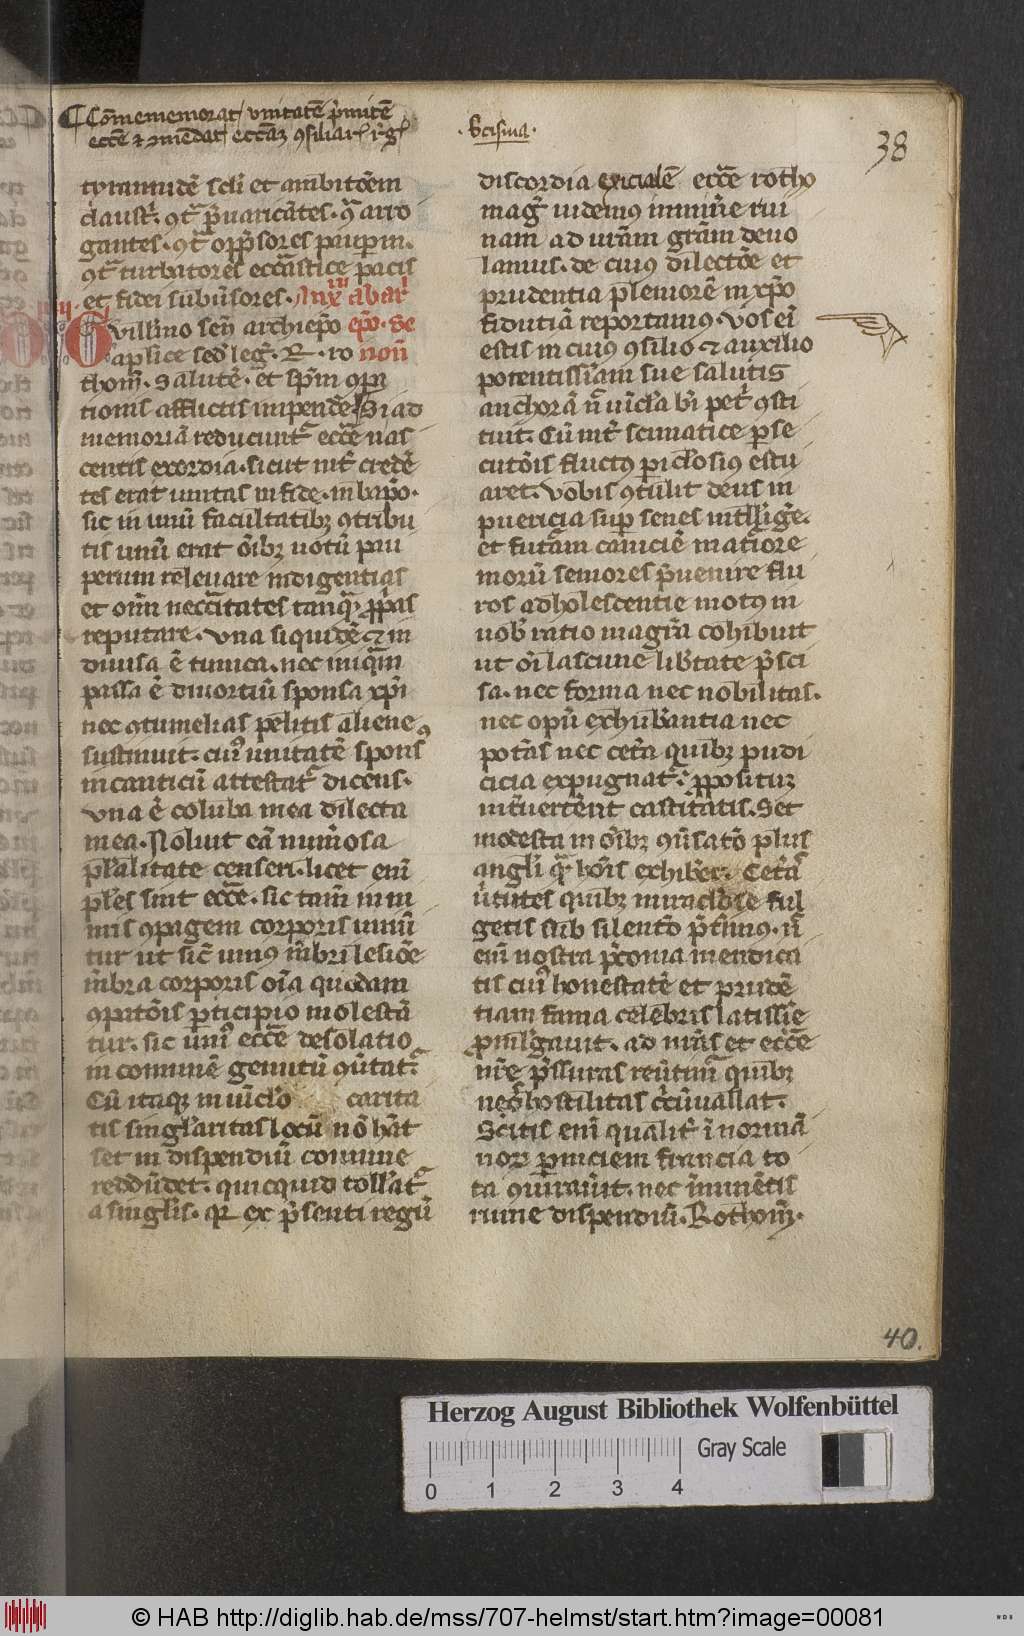 Com̄ememorat vnitatē p̄mitiē
eccē ⁊ ꝯmēdat eccāȝ ꝯsiliar᷒ r̄g᷒
·Scisma·
38
tyrannidē scl̓i et ambitōem
claust᷒. ꝯt᷒ p̄uaricātes· ꝙ᷒ arro
gantes· ꝯt᷒ opp̄sores paupm̄.
ꝯt᷒ turbatores eccāstice pacis
et fidei subūsores.
villīno sen̄ archiep̄o ep̄o. de
aplīce sed̓ leg̓. R. ro non̄
thom̄. Salutē. et sp̄m ꝯpa
tionis afflictis impendē. Si ad
memoriā reducunt᷒ eccē nas
centis exordia· sicut int̓ credē
tes erat unitas in fide· in bap̄o·
sic in unū facultatibȝ ꝯtribu
tis unū erat oībȝ uotū pau
perum releuare indigentias
et om̄n neccītates tanqȝ pp̄as
reputare. vna siquidē ⁊ in
diuisa ē tunica. nec unq̄m
passa ē diuortiū sponsa xp̄i
nec ꝯtumelias pellicis aliene
sustinuit. cui᷒ unitatē spons᷒
in canticū attestat᷒ dicens·
vna ē columba mea dilecta
mea· Noluit eā num̓osa
pl̓alitate censeri. licet enī
pl̓es sint eccē. sic tam̄ in in
mis ꝯpagem corporis uniū
tur ut sic̄ uniꝰ m̄bri lesiōe
m̄bra corporis oīa quodam
ꝯpatōis p̱ticipio molestā
tur. sic uni᷒ eccē desolatio
in comunē gemitū ꝯūtat᷒.
Cū itaqȝ in uīcl̓o carita
tis singl̓aritas locū nō hāt
set in dispendiū comune
reddūdet. quicquid toll̓at᷒
a singl̓is. qꝛ ex p̄senti regū
discordia exicialē eccē rotho
mag̓ uidemꝰ imminē rui
nam ad ur̄am gr̄am deuo
lamus. de cuiꝰ dilectōe et
prudentia pleniorē in xp̄o
fidutiā reportamus. vos eī
estis in cuiꝰ ꝯsilio ⁊ auxilio
potentissīam sue salutis
anchorā n̄ uīcl̓a bī pet᷒ ꝯsti
tuit. Cū int̓ scismatice p̱se
cutōis fluctꝰ pic̄losiꝰ estu
aret. vobis ꝯtulit deus in
puericia sup̱ senes intll̓ige.
et futām caniciē mat᷒iore
morū seniores p̄uenire flu
xos adholescentie motꝰ in
uob̓ ratio magr̄a cohibuit
ut oī lasciuie lib̓tate p̄sci
sa. nec forma nec nobilitas.
nec opū exhub̓antia nec
potās nec cet̓a quibȝ pudi
cicia expugnat᷒. ꝓpositum
int̓uertērt castitatis. Set
modesta in oībȝ ꝯūsatō plus
angl̓i q̄ hoīs exhib̓et. Cet̓a
ūtutes quibȝ miraclōse ful
getis sub silentō p̄t̓imus. n̄
enī nostra p̄conia mendica
tis cui᷒ honestatē et prudē
tiam fama celebris latissīe
ꝓmlḡauit. ad nr̄as et eccē
nr̄e p̄ssuras reūtim᷒ quibȝ
nos hostilitas c̓cūuallat.
Scitis enī qualit᷒ ī normā
noꝝ p̱niciem francia to
ta ꝯiurauit. nec īminētis
ruine dispendiū. Rothom̄.
40.
Herzog August Bibliothek Wolfenbüttel
Gray Scale
0 1 2 3 4
© HAB http://diglib.hab.de/mss/707-helmst/start.htm?image=00081